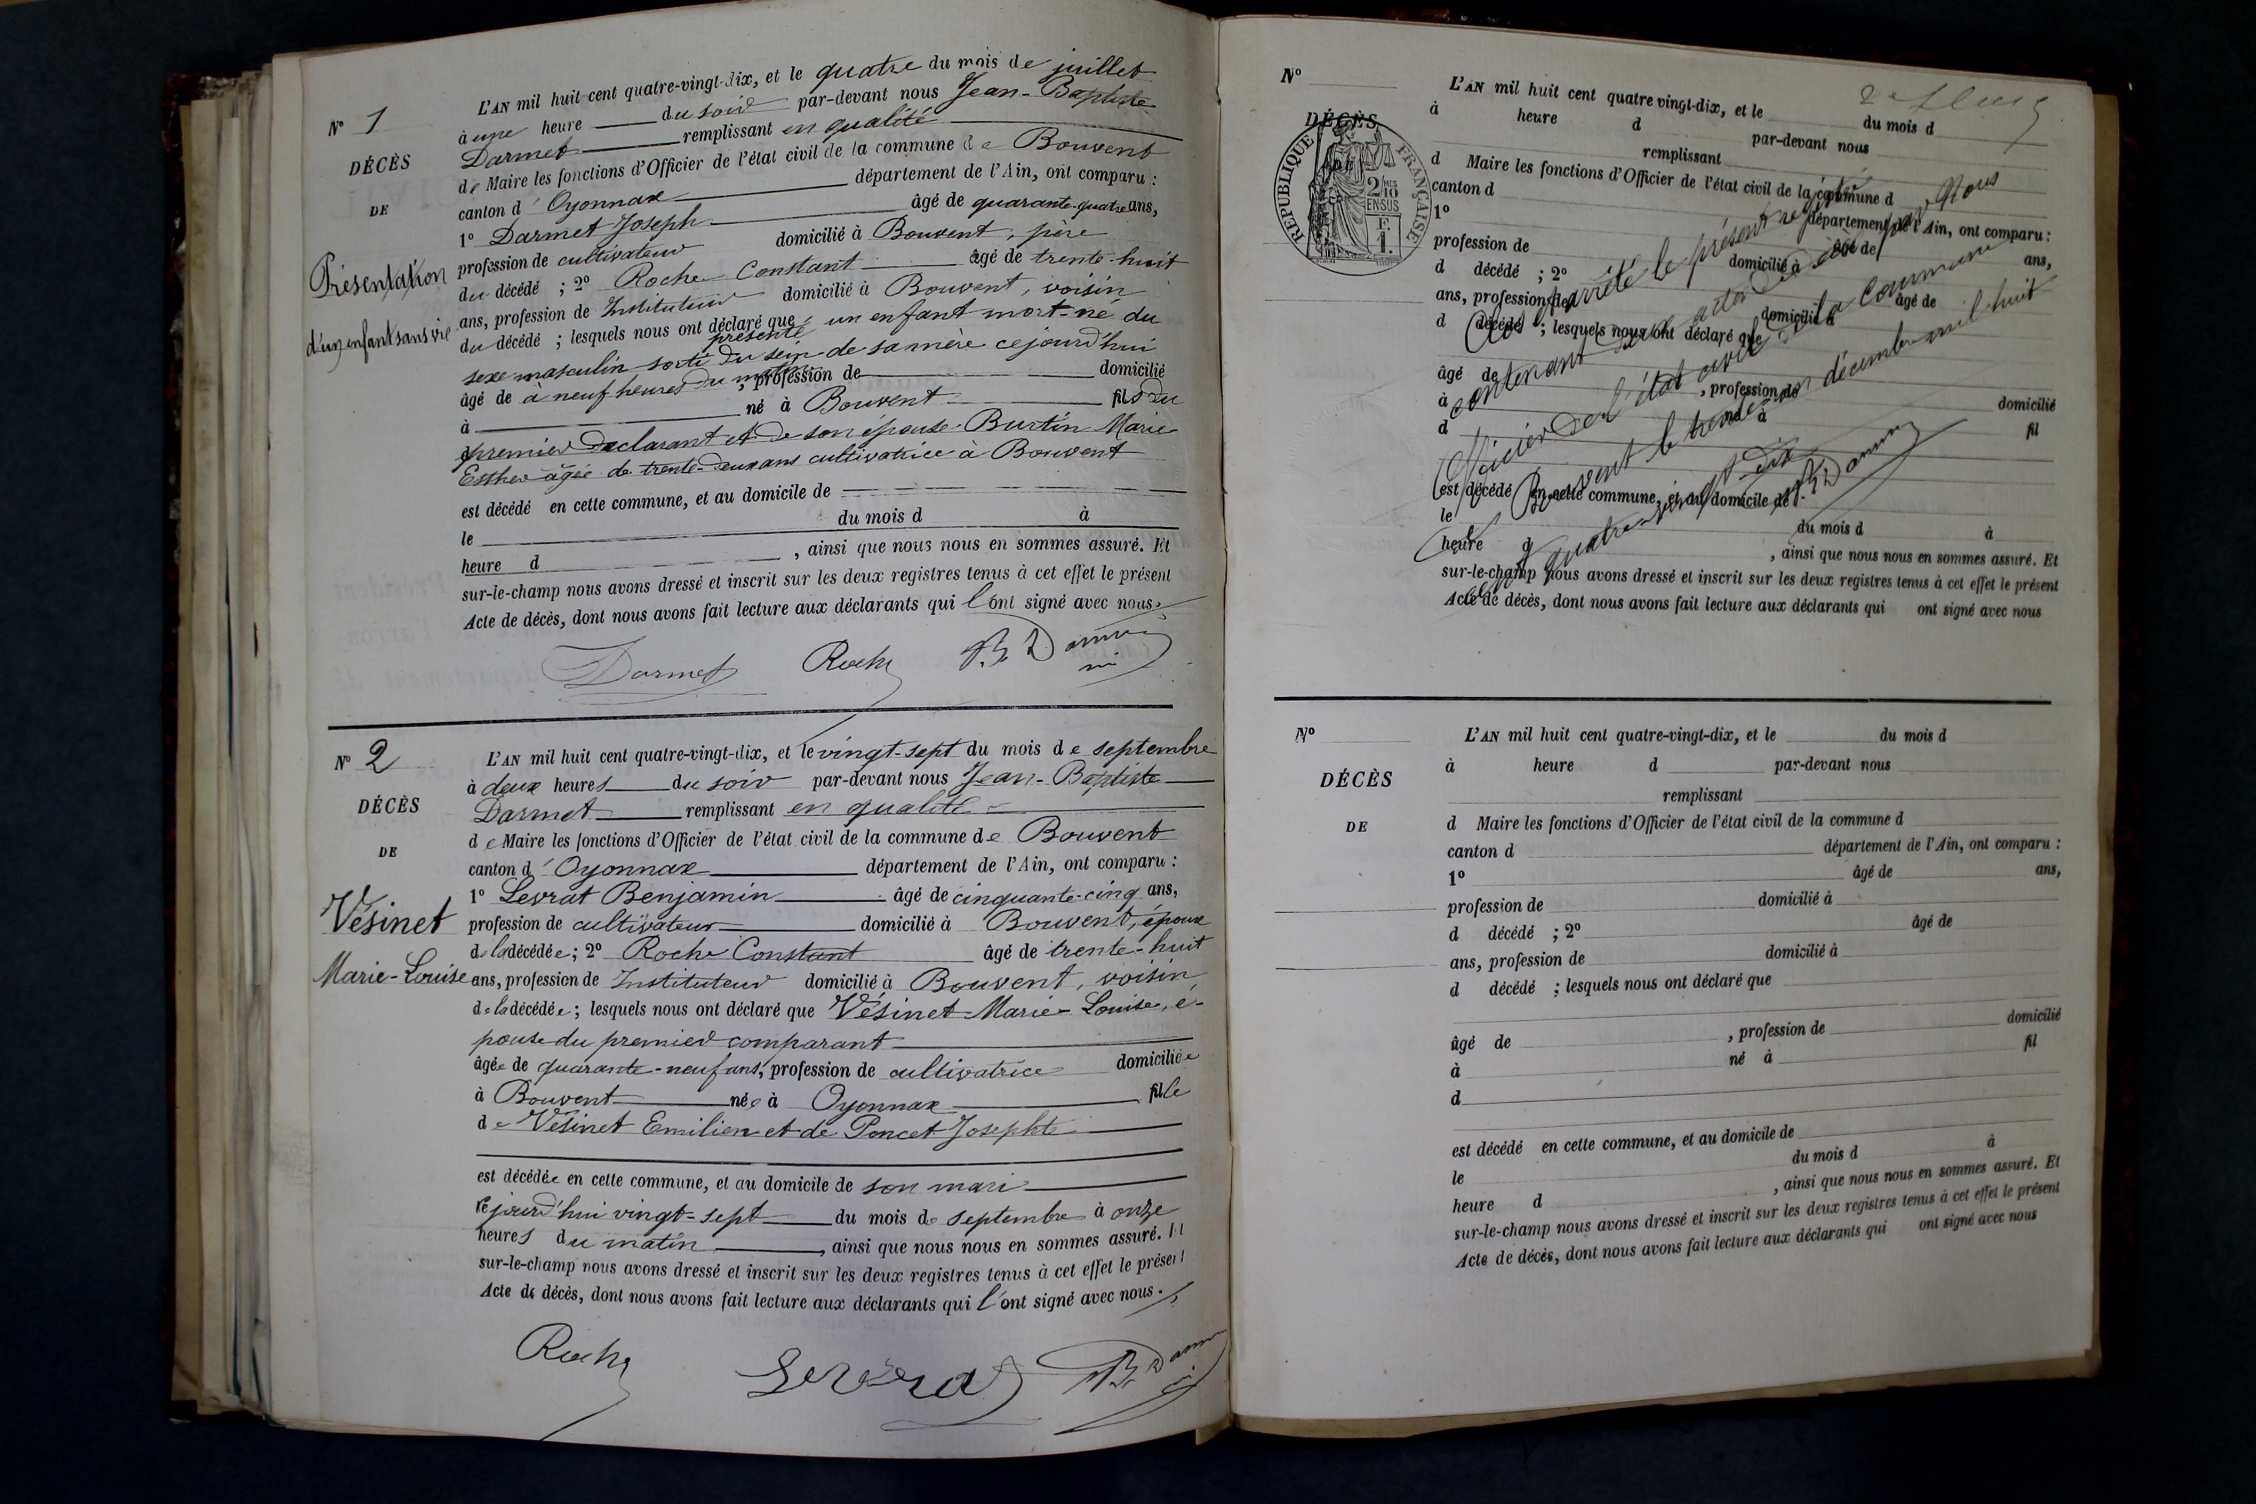 N° 1
DÉCÈS
DE
Présentation
d'un enfant sans vie
L'AN mil huit cent quatre-vingt-dix, et le quatre du mois de juillet
à une heure du soir par-devant nous Jean-Baptiste
Darmet remplissant en qualité
de Maire les fonctions d'Officier de l'état civil de la commune de Bouvent
canton d'Oyonnax département de l'Ain, ont comparu :
1° Darmet Joseph âgé de quarante-quatre ans,
profession de cultivateur domicilié à Bouvent, père
du décédé ; 2° Roche Constant âgé de trente-huit
ans, profession de Instituteur domicilié à Bouvent, voisin
du décédé ; lesquels nous ont déclaré que présenté un enfant mort-né du
sexe masculin sorti du sein de sa mère cejourd'hui
âgé de à neuf heures du matin, profession de domicilié
à né à Bouvent fils du
premier déclarant et de son épouse Burtin Marie
Esther âgée de trente-deux ans cultivatrice à Bouvent
est décédé en cette commune, et au domicile de
le du mois d à
heure d , ainsi que nous nous en sommes assuré. Et
sur-le-champ nous avons dressé et inscrit sur les deux registres tenus à cet effet le présent
Acte de décès, dont nous avons fait lecture aux déclarants qui l'ont signé avec nous.
Darmet Roche
N° 2
DÉCÈS
DE
Vésinet
Marie-Louise
L'AN mil huit cent quatre-vingt-dix, et le vingt-sept du mois de septembre
à deux heures du soir par-devant nous Jean-Baptiste
Darmet remplissant en qualité
de Maire les fonctions d'Officier de l'état civil de la commune de Bouvent
canton d'Oyonnax département de l'Ain, ont comparu :
1° Levrat Benjamin âgé de cinquante-cinq ans,
profession de cultivateur domicilié à Bouvent, époux
de la décédée ; 2° Roche Constant âgé de trente-huit
ans, profession de Instituteur domicilié à Bouvent, voisin
de la décédée ; lesquels nous ont déclaré que Vésinet Marie-Louise, é-
pouse du premier comparant
âgée de quarante-neuf ans, profession de cultivatrice domiciliée
à Bouvent née à Oyonnax fille
de Vésinet Emilien et de Poncet Josephte
est décédée en cette commune, et au domicile de son mari
cejourd'hui vingt-sept du mois de septembre à onze
heures du matin, ainsi que nous nous en sommes assuré. Et
sur-le-champ nous avons dressé et inscrit sur les deux registres tenus à cet effet le présent
Acte de décès, dont nous avons fait lecture aux déclarants qui l'ont signé avec nous.
Roche Levrat
N°
DÉCÈS
RÉPUBLIQUE FRANÇAISE
2/10 EN SUS
F. 1.
L'AN mil huit cent quatre vingt-dix, et le du mois d
à heure d par-devant nous
remplissant
d Maire les fonctions d'Officier de l'état civil de la commune d
canton d département de l'Ain, ont comparu :
1° âgé de ans,
profession de domicilié à
d décédé ; 2° âgé de
ans, profession de domicilié à
d décédé ; lesquels nous ont déclaré que
âgé de , profession de domicilié
à né à fil
d
est décédé en cette commune, et au domicile de
le du mois d à
heure d , ainsi que nous nous en sommes assuré. Et
sur-le-champ nous avons dressé et inscrit sur les deux registres tenus à cet effet le présent
Acte de décès, dont nous avons fait lecture aux déclarants qui ont signé avec nous
arrêté le présent registre
contenant deux actes de décès par Nous
Officier de l'état civil de la commune
Bouvent le trente un décembre mil huit
cent quatre vingt dix
N°
DÉCÈS
DE
L'AN mil huit cent quatre-vingt-dix, et le du mois d
à heure d par-devant nous
remplissant
d Maire les fonctions d'Officier de l'état civil de la commune d
canton d département de l'Ain, ont comparu :
1° âgé de ans,
profession de domicilié à
d décédé ; 2° âgé de
ans, profession de domicilié à
d décédé ; lesquels nous ont déclaré que
âgé de , profession de domicilié
à né à fil
d
est décédé en cette commune, et au domicile de
le du mois d à
heure d , ainsi que nous nous en sommes assuré. Et
sur-le-champ nous avons dressé et inscrit sur les deux registres tenus à cet effet le présent
Acte de décès, dont nous avons fait lecture aux déclarants qui ont signé avec nous